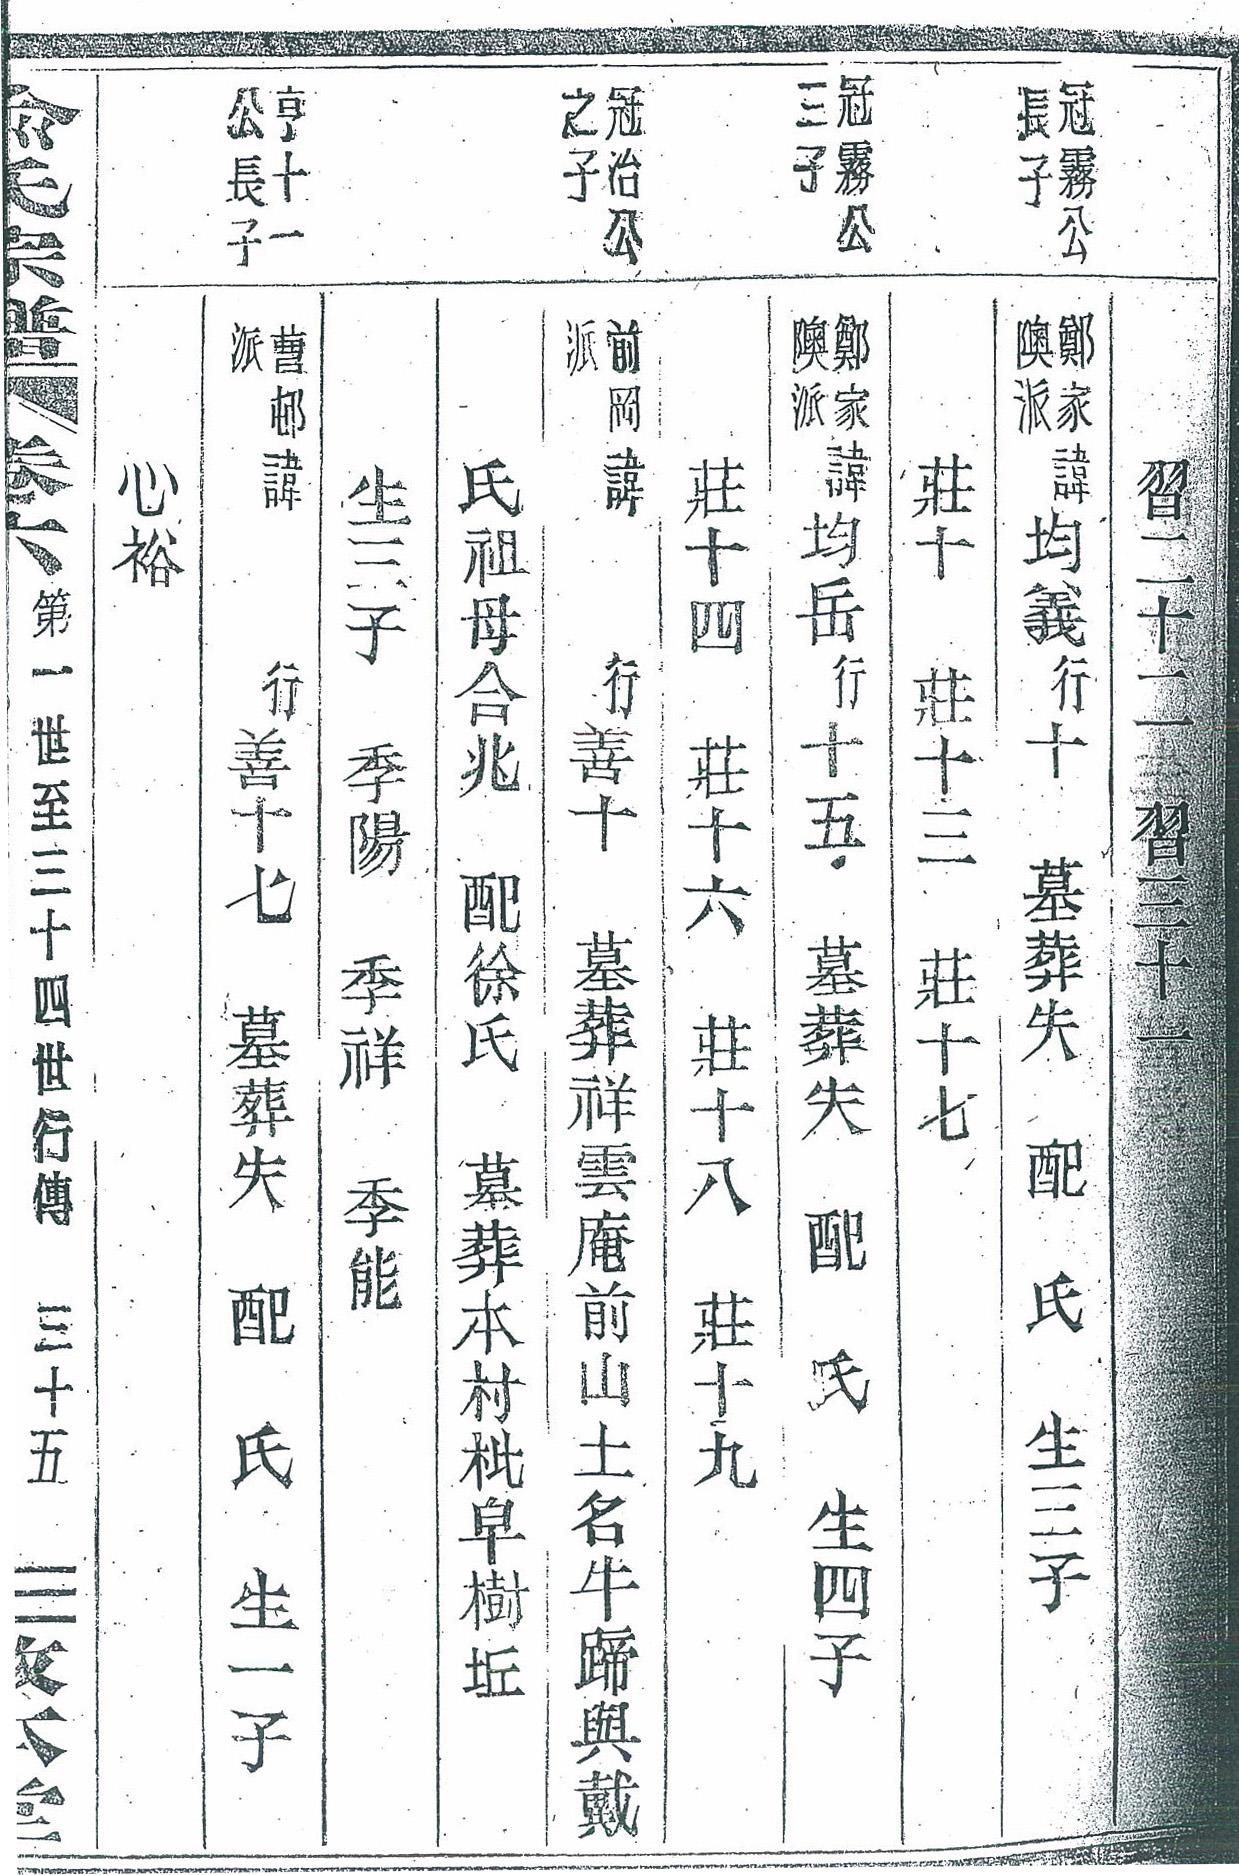 習二十二　習三十一
冠霧公
長子
鄭家
隩派
諱均義行十　墓葬失　配　氏　生三子
莊十　莊十三　莊十七
冠霧公
三子
鄭家
隩派
諱均岳行十五　墓葬失　配　氏　生四子
莊十四　莊十六　莊十八　莊十九
冠治公
之子
前岡
派
諱　　行善十　墓葬祥雲庵前山土名牛蹄與戴
氏祖母合兆　配徐氏　墓葬本村枇皁樹坵
生三子　季陽　季祥　季能
亨十一
公長子
曹邨
派
諱　　行善十七　墓葬失　配　氏　生一子
心裕
氏宗譜　卷六　第一世至三十四世行傳　三十五